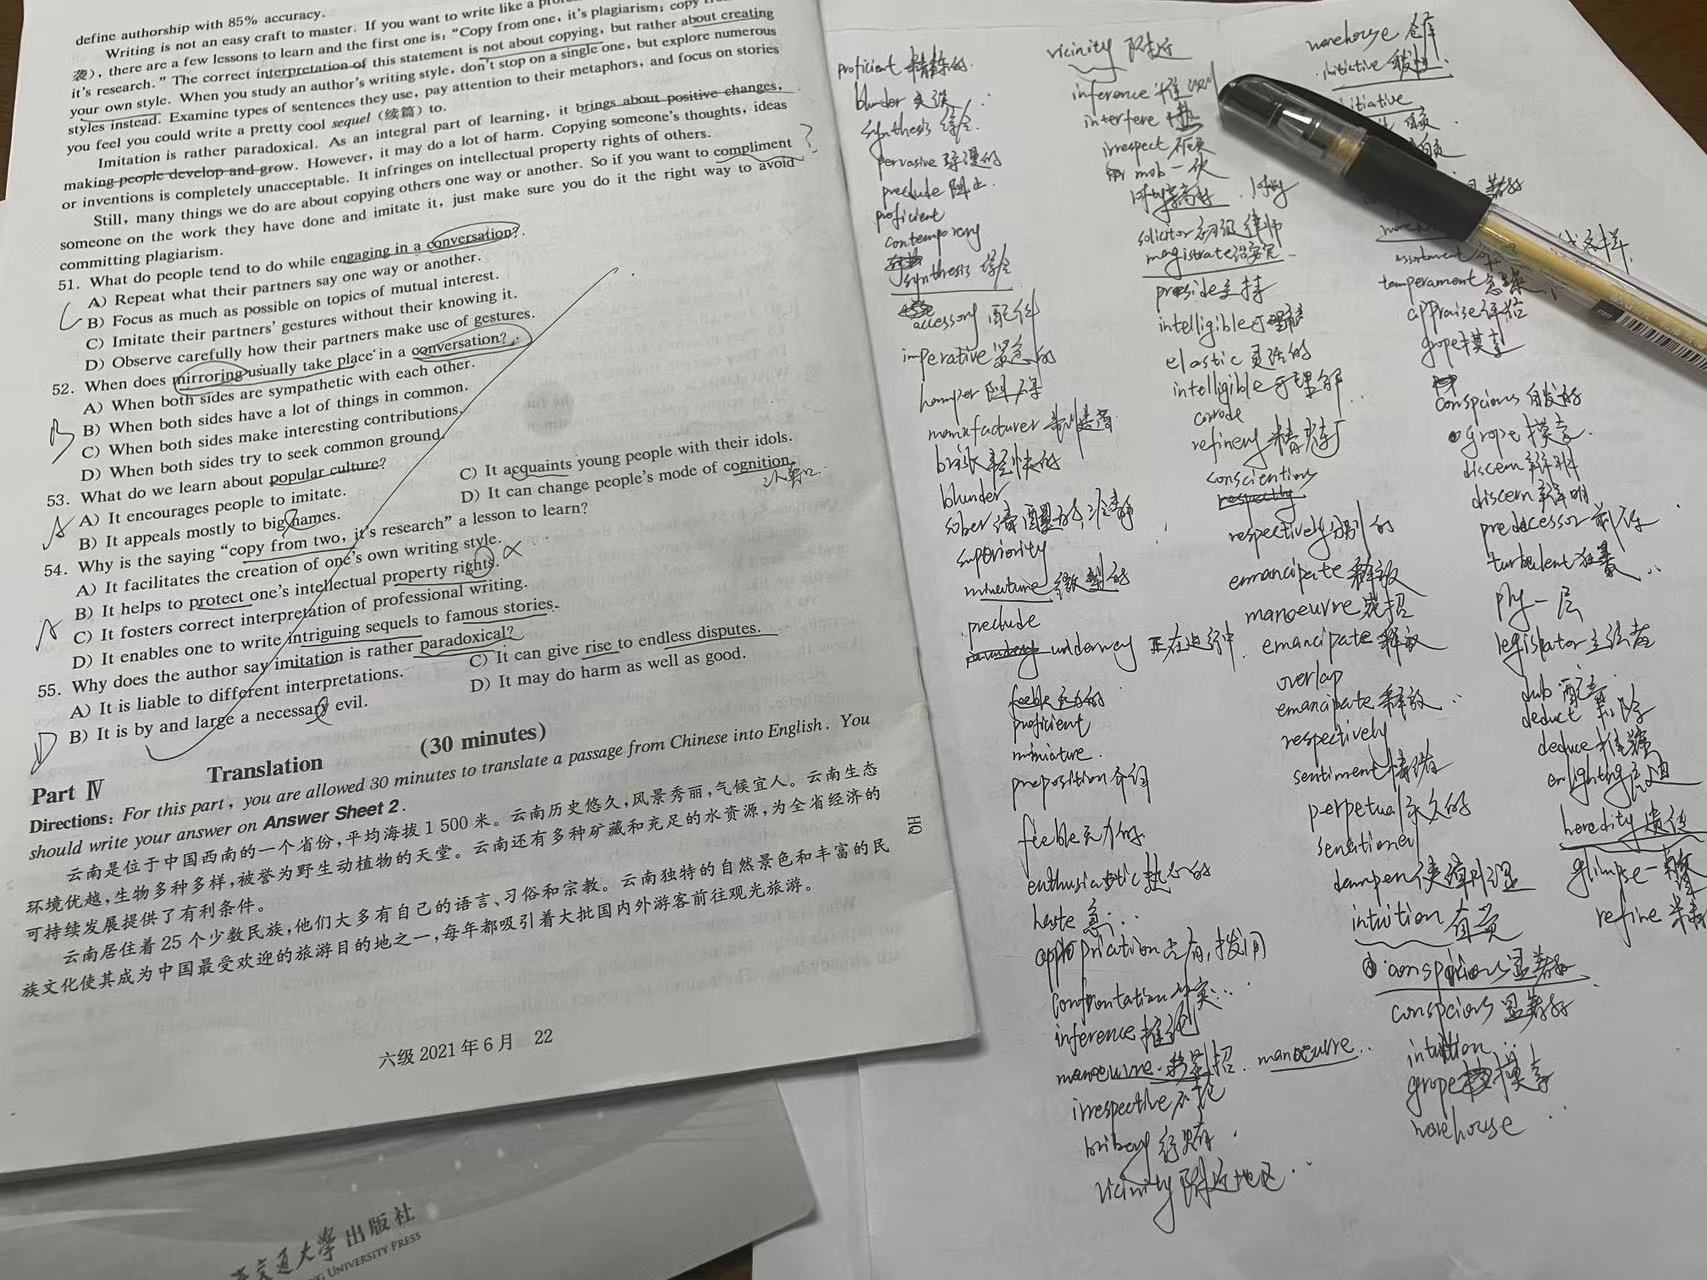 define authorship with 85% accuracy.
Writing is not an easy craft to master. If you want to write like a
袭), there are a few lessons to learn and the first one is: "Copy from one, it's plagiarism; copy
it's research." The correct interpretation of this statement is not about copying, but rather about creating
your own style. When you study an author's writing style, don't stop on a single one, but explore numerous
styles instead. Examine types of sentences they use, pay attention to their metaphors, and focus on stories
you feel you could write a pretty cool sequel (续篇) to.
Imitation is rather paradoxical. As an integral part of learning, it brings about positive changes,
making people develop and grow. However, it may do a lot of harm. Copying someone's thoughts, ideas
or inventions is completely unacceptable. It infringes on intellectual property rights of others.
Still, many things we do are about copying others one way or another. So if you want to compliment
someone on the work they have done and imitate it, just make sure you do it the right way to avoid
committing plagiarism.
51. What do people tend to do while engaging in a conversation?
A) Repeat what their partners say one way or another.
B) Focus as much as possible on topics of mutual interest.
C) Imitate their partners' gestures without their knowing it.
D) Observe carefully how their partners make use of gestures.
52. When does mirroring usually take place in a conversation?
A) When both sides are sympathetic with each other.
B) When both sides have a lot of things in common.
C) When both sides make interesting contributions.
D) When both sides try to seek common ground.
53. What do we learn about popular culture?
A) It encourages people to imitate.
C) It acquaints young people with their idols.
B) It appeals mostly to big names.
D) It can change people's mode of cognition.
54. Why is the saying "copy from two, it's research" a lesson to learn?
A) It facilitates the creation of one's own writing style.
B) It helps to protect one's intellectual property rights.
C) It fosters correct interpretation of professional writing.
D) It enables one to write intriguing sequels to famous stories.
55. Why does the author say imitation is rather paradoxical?
A) It is liable to different interpretations.
C) It can give rise to endless disputes.
B) It is by and large a necessary evil.
D) It may do harm as well as good.
Part Ⅳ Translation (30 minutes)
Directions: For this part, you are allowed 30 minutes to translate a passage from Chinese into English. You
should write your answer on Answer Sheet 2.
云南是位于中国西南的一个省份,平均海拔1 500米。云南历史悠久,风景秀丽,气候宜人。云南生态
环境优越,生物多种多样,被誉为野生动植物的天堂。云南还有多种矿藏和充足的水资源,为全省经济的
可持续发展提供了有利条件。
云南居住着25个少数民族,他们大多有自己的语言、习俗和宗教。云南独特的自然景色和丰富的民
族文化使其成为中国最受欢迎的旅游目的地之一,每年都吸引着大批国内外游客前往观光旅游。
六级2021年6月 22
HQ
交通大学出版社
UNIVERSITY PRESS
proficient
blunder
synthesis 综合
pervasive
preclude 阻止
proficient
contemporary
synthesis 综合
accessory 配件
imperative 紧急的
hamper 阻碍
manufacturer 制造者
brisk 轻快的
blunder
sober 清醒的 冷静
superiority
miniature 微型的
preclude
underway 正在进行中
feeble 无力的
proficient
miniature
preposition 介词
feeble 无力的
enthusiastic 热心的
haste 急
appropriation 占有,拨用
confrontation
inference 推论
manoeuvre 招 manoeuvre
irrespective 不论
bribery 行贿
vicinity 附近地区
vicinity 附近
inference 推
interfere
irrespect
mob 一伙
lofty 崇高的 lofty
solicitor 初级律师
magistrate 治安官
preside 主持
intelligible
elastic 灵活的
intelligible 可理解
corrode
refinery 精炼厂
conscientious
respectively 分别的
emancipate 释放
manoeuvre
emancipate 释放
overlap
emancipate 释放
respectively
sentiment 情绪
perpetual 永久的
dampen 使潮湿
intuition 直觉
conspicious 显著的
conspcious 显著的
intuition
grope 摸索
warehouse
warehouse 仓库
initiative
initiative
assortment
temperament 急躁
appraise 评估
grope 摸索
conspcious
grope 摸索
discern 辨明
discern 辨明
predecessor 前任
turbulent 狂暴
ply 一层
legislator 立法者
dub 配音
deduct 扣除
deduce 推
heredity 遗传
glimpse 一瞥
refine